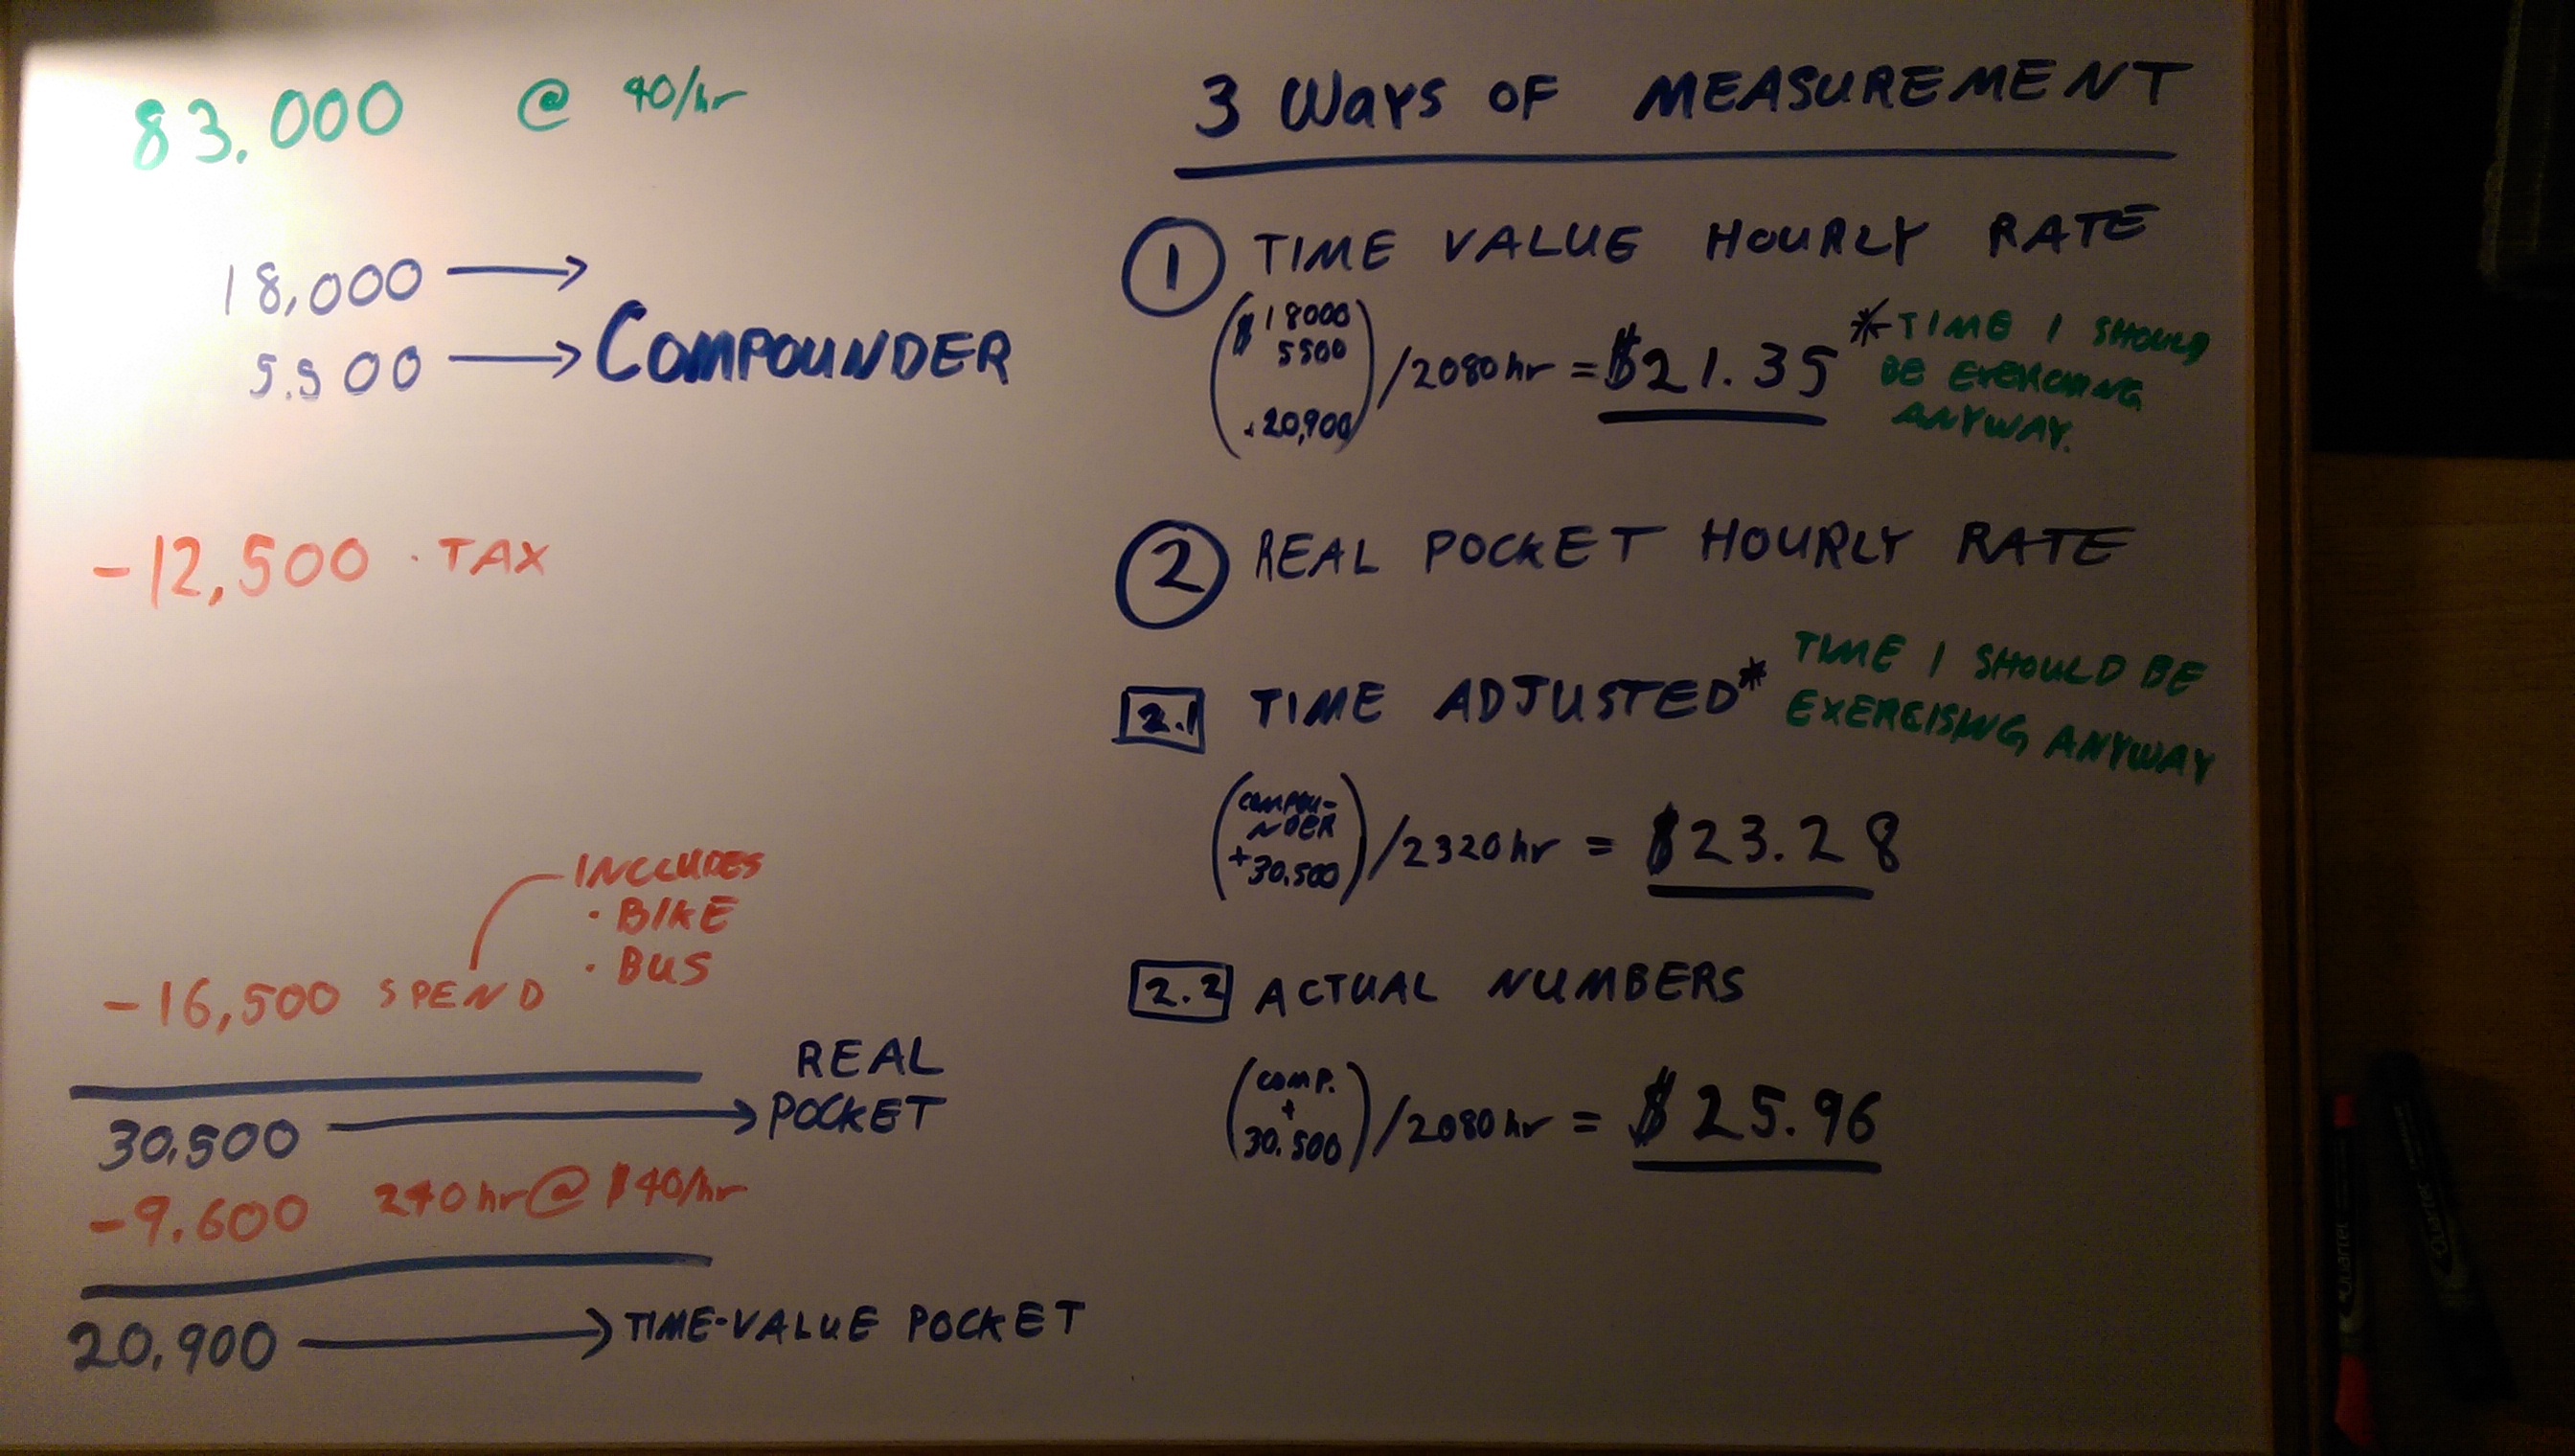 83.000 @ 40/hr
18,000 →
5.500 → COMPOUNDER
-12,500 · TAX
INCLUDES
· BIKE
· BUS
-16,500 SPEND
REAL
30.500 → POCKET
-9.600 240hr @ $40/hr
20.900 → TIME-VALUE POCKET
3 Ways OF MEASUREMENT
1 TIME VALUE HOURLY RATE
$ 18000
5500
+20,900
/2080hr = $21.35
* TIME I SHOULD
BE EXERCISING
ANYWAY.
2 REAL POCKET HOURLY RATE
2.1 TIME ADJUSTED*
TIME I SHOULD BE
EXERCISING ANYWAY
(COMPOU-
NDER
+30.500) /2320hr = $23.28
2.2 ACTUAL NUMBERS
(COMP.
+
30.500) /2080hr = $25.96
Quartet
Quartet